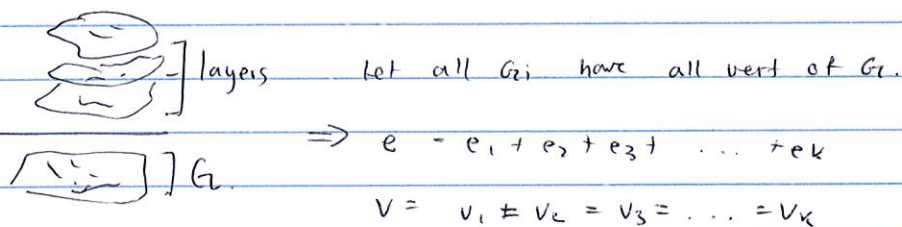 ] layers Let all Gi have all vert of G.
⇒ e = e1 + e2 + e3 + ... + ek
] G.
V = v1 = v2 = v3 = ... = vk